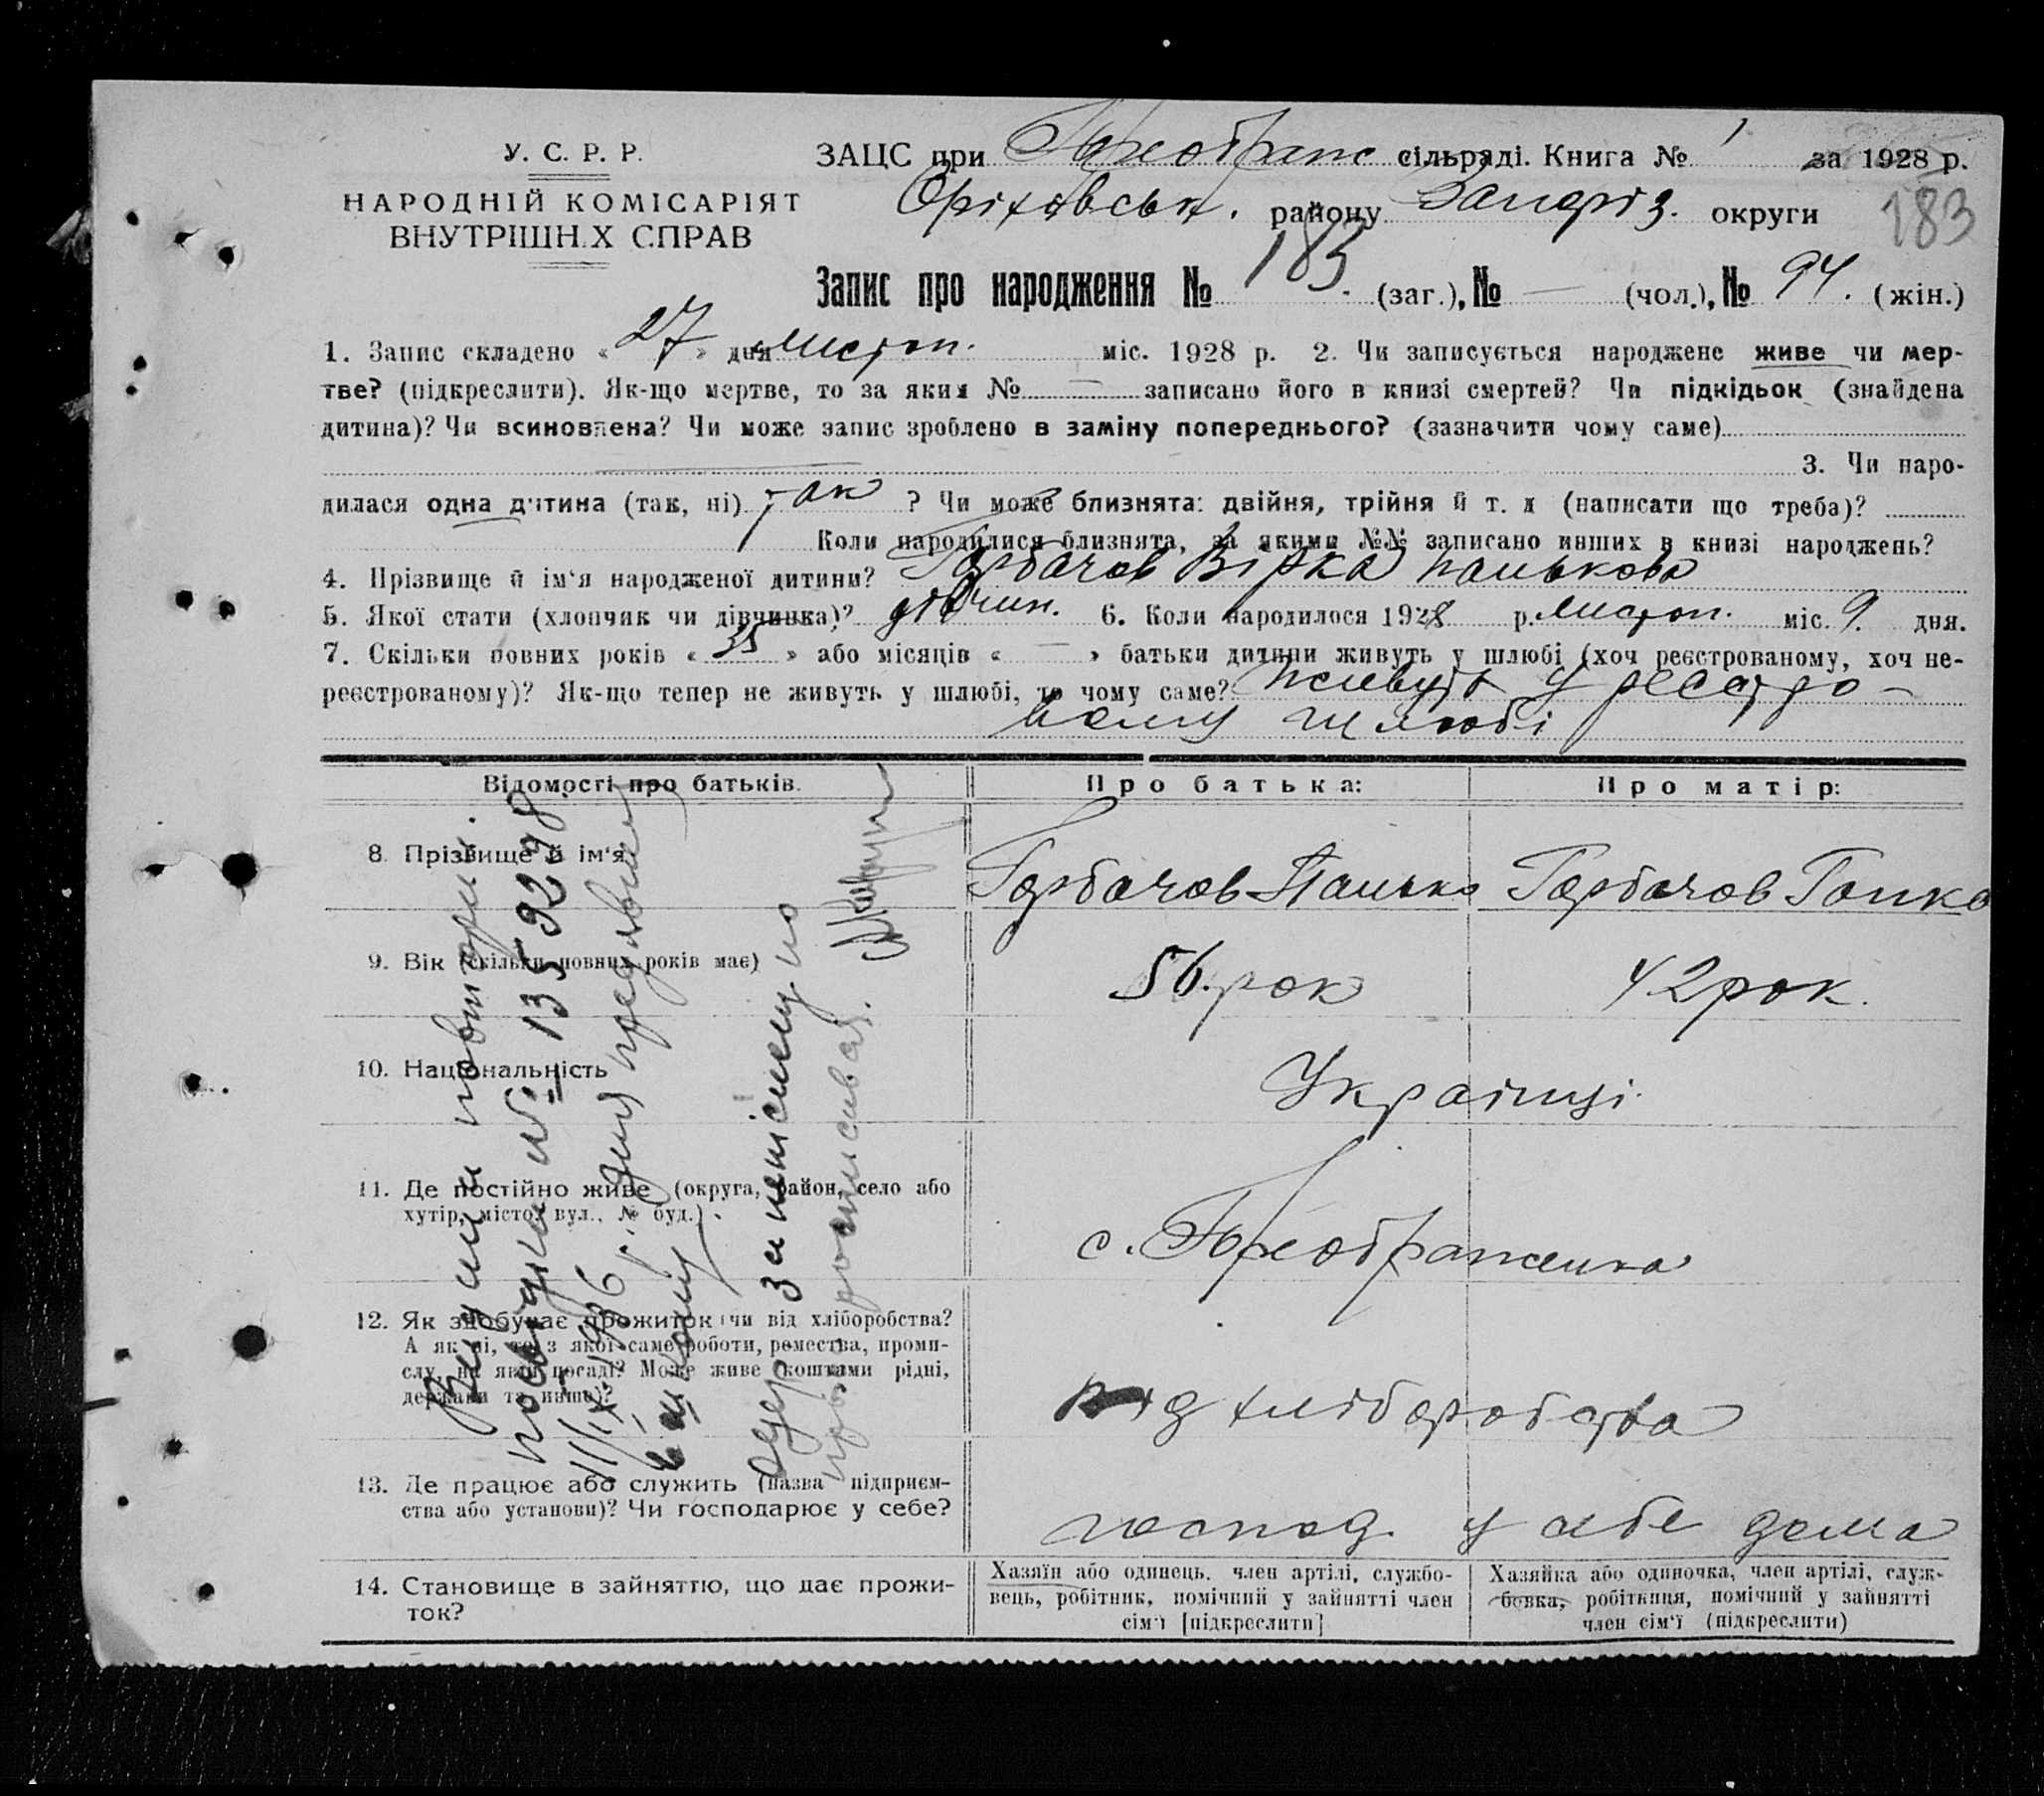 У. С. Р. Р.
НАРОДНІЙ КОМІСАРІЯТ
ВНУТРІШН.Х СПРАВ
ЗАЦС при Преображ сільраді. Книга № 1 за 1928 р.
Оріхівськ. району Запоріз. округи
183
Запис про народження № 183. (заг.), № — (чол.), № 94. (жін.)
1. Запис складено « 27 » дня листоп. міс. 1928 р. 2. Чи записується народжене живе чи мер-
тве? (підкреслити). Як-що мертве, то за яким № — записано його в книзі смертей? Чи підкідьок (знайдена
дитина)? Чи всиновлена? Чи може запис зроблено в заміну попереднього? (зазначити чому саме)
3. Чи наро-
дилася одна дитина (так, ні) так ? Чи може близнята: двійня, трійня й т. д (написати що треба)?
Коли народилися близнята, за якими №№ записано инших в книзі народжень?
4. Прізвище й ім‘я народженої дитини? Горбачов Вірка Панькова
5. Якої стати (хлопчик чи дівчинка)? дівчин. 6. Коли народилося 1928 р. листоп. міс. 9. дня.
7. Скільки повних років « 25 » або місяців « — » батьки дитини живуть у шлюбі (хоч реєстрованому, хоч не-
реєстрованому)? Як-що тепер не живуть у шлюбі, то чому саме? живуть у реєстро-
ваому шлюбі
Відомості про батьків.
Про батька:
Про матір:
8. Прізвище й ім‘я
Горбачов Панько
Горбачов Гопка
9. Вік (скільки повних років має)
56. рок
42 рок.
10. Національність
Українці.
11. Де постійно живе (округа, район, село або
хутір, місто, вул., № буд.)
с. Преображенка
12. Як здобуває прожиток (чи від хліборобства?
А як ні, то з якої саме роботи, ремества, проми-
слу, на якій посаді? Може живе коштами рідні,
держави та инше)?
від хліборобства
13. Де працює або служить (назва підприєм-
ства або установи)? Чи господарює у себе?
господ. у себе дома
14. Становище в зайняттю, що дає прожи-
ток?
Хазяїн або одинець, член артілі, службо-
вець, робітник, помічний у зайнятті член
сім‘ї [підкреслити]
Хазяйка або одиночка, член артілі, служ-
бовка, робітниця, помічний у зайнятті
член сім‘ї (підкреслити)
№ 135928